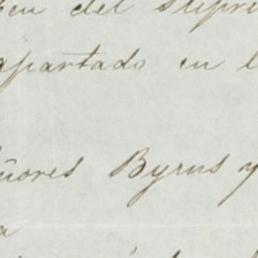 del Supre
apartado en l
ñores Byrus y
a